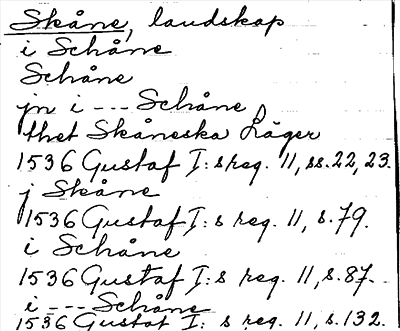 Skåne, landskap
i Schåne
Schåne
jn i --- Schåne
thet Skåneska Läger
1536 Gustaf I:s reg. 11, ss. 22, 23.
j Skåne
1536 Gustaf I:s reg. 11, s. 79.
i Schåne
1536 Gustaf I:s reg. 11, s. 87.
i --- Schåne
1536 Gustaf I:s reg. 11, s. 132.